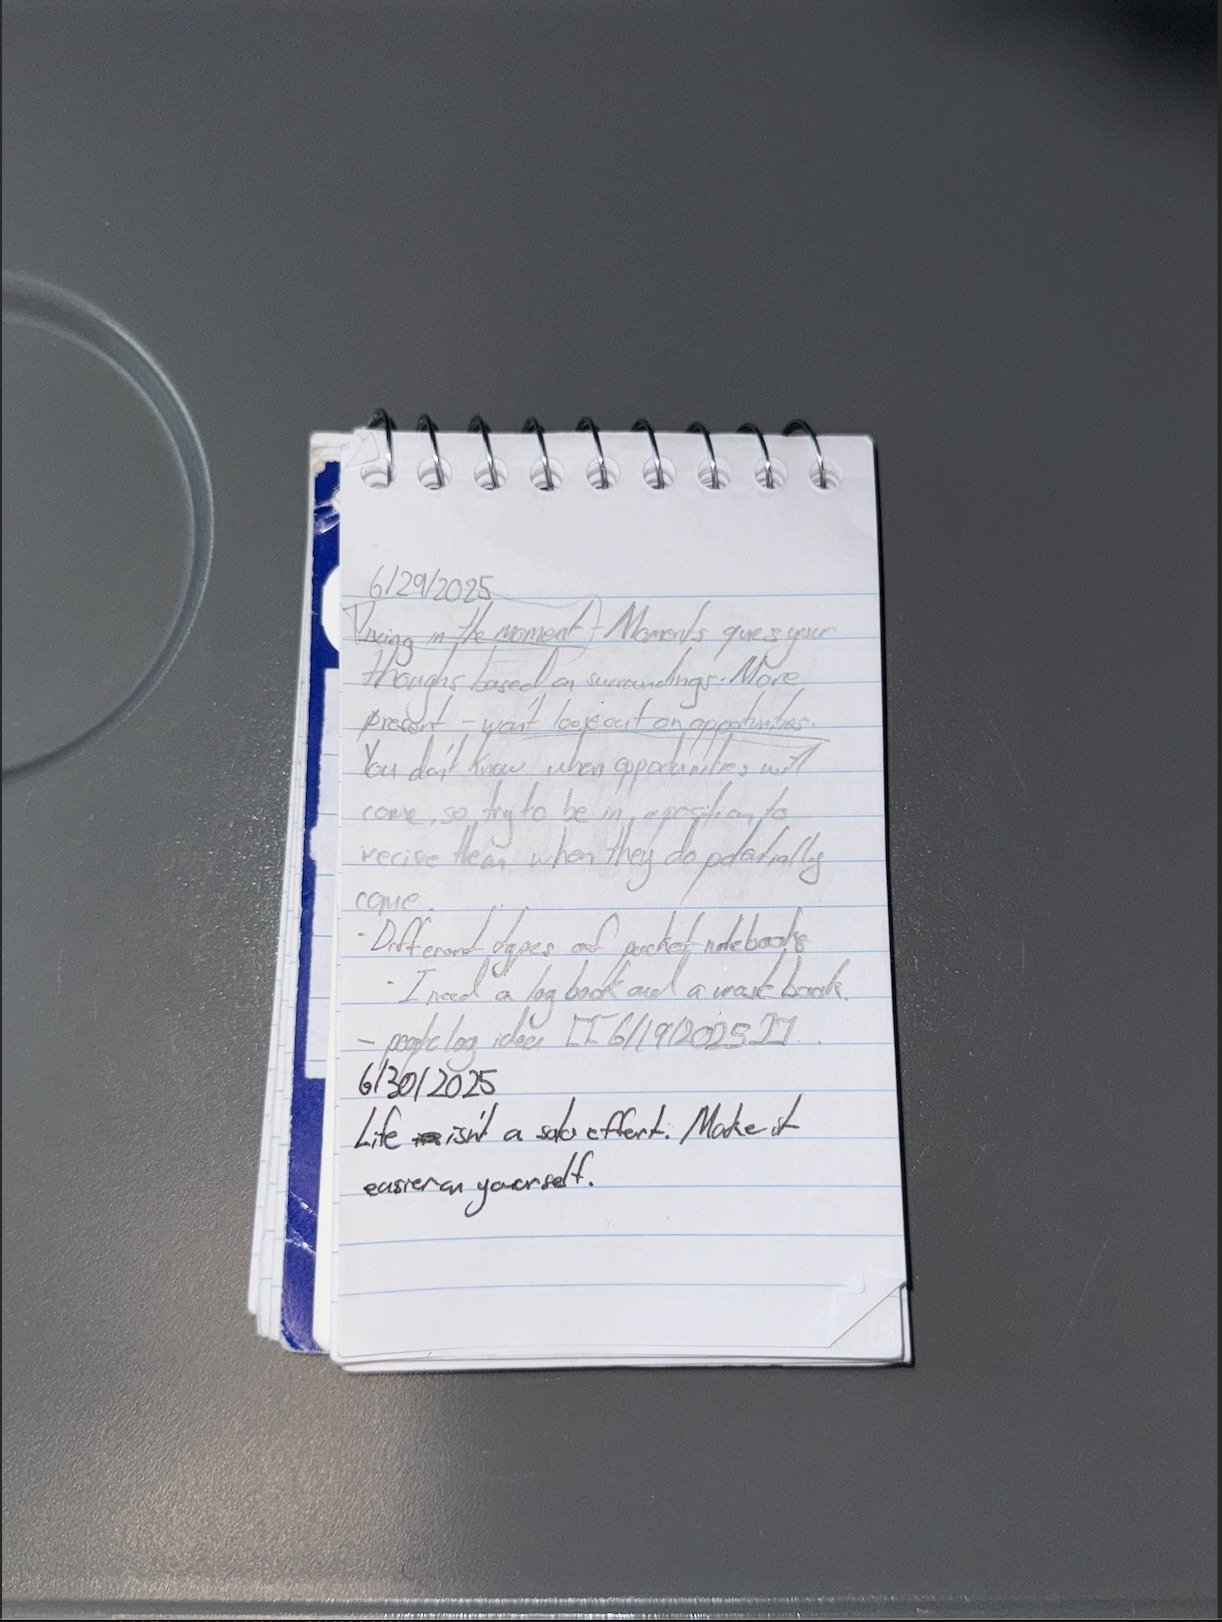 6/29/2025
Living in the moment - Moments ques your
thoughs based on surroundings. More
present - won't loose out on opportunities.
You don't know when opportunities will
come, so try to be in a position to
recive them when they do potentially
come.
- Different types of pocket notebooks
- I need a log book and a waste book.
- people log idea [[6/19/2025]]
6/30/2025
Life isn't a solo effort. Make it
easier on yourself.